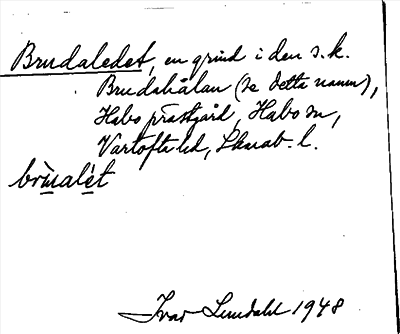 Brudaledet, en grind i den s.k.
Brudahålan (se detta namn),
Habo prästgård, Habo sn,
Vartofta hd, Skarab. l.
brùalét
Ivar Lundahl 1948